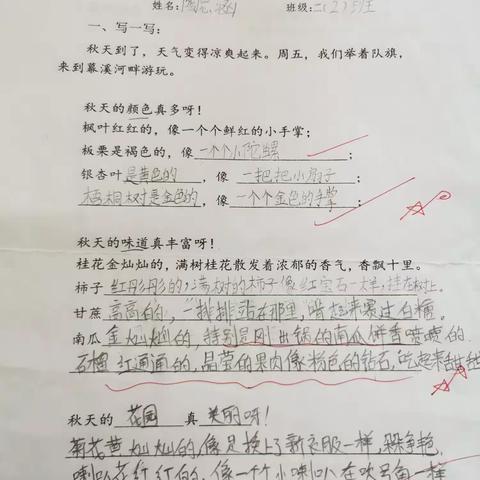 姓名: 班级: 二(2)班
一、写一写:
秋天到了，天气变得凉爽起来。周五，我们举着队旗，
来到幕溪河畔游玩。
秋天的颜色真多呀！
枫叶红红的，像一个个鲜红的小手掌；
板栗是褐色的，像一个个小陀螺；
银杏叶是黄色的，像一把把小扇子；
梧桐树是金色的，像一个个金色的手掌
秋天的味道真丰富呀！
桂花金灿灿的，满树桂花散发着浓郁的香气，香飘十里。
柿子红彤彤的，满树的柿子像红宝石一样，挂在树上。
甘蔗高高的，一排排站在那里，啃起来赛过白糖。
南瓜金灿灿的，特别是刚出锅的南瓜饼香喷喷的.
石榴红通通的，晶莹的果肉像粉色的钻石，吃起来甜甜
秋天的花园真美丽呀！
菊花黄灿灿的，像是换上了新衣服一样，
喇叭花红红的，像一个个小喇叭在吹号角一样